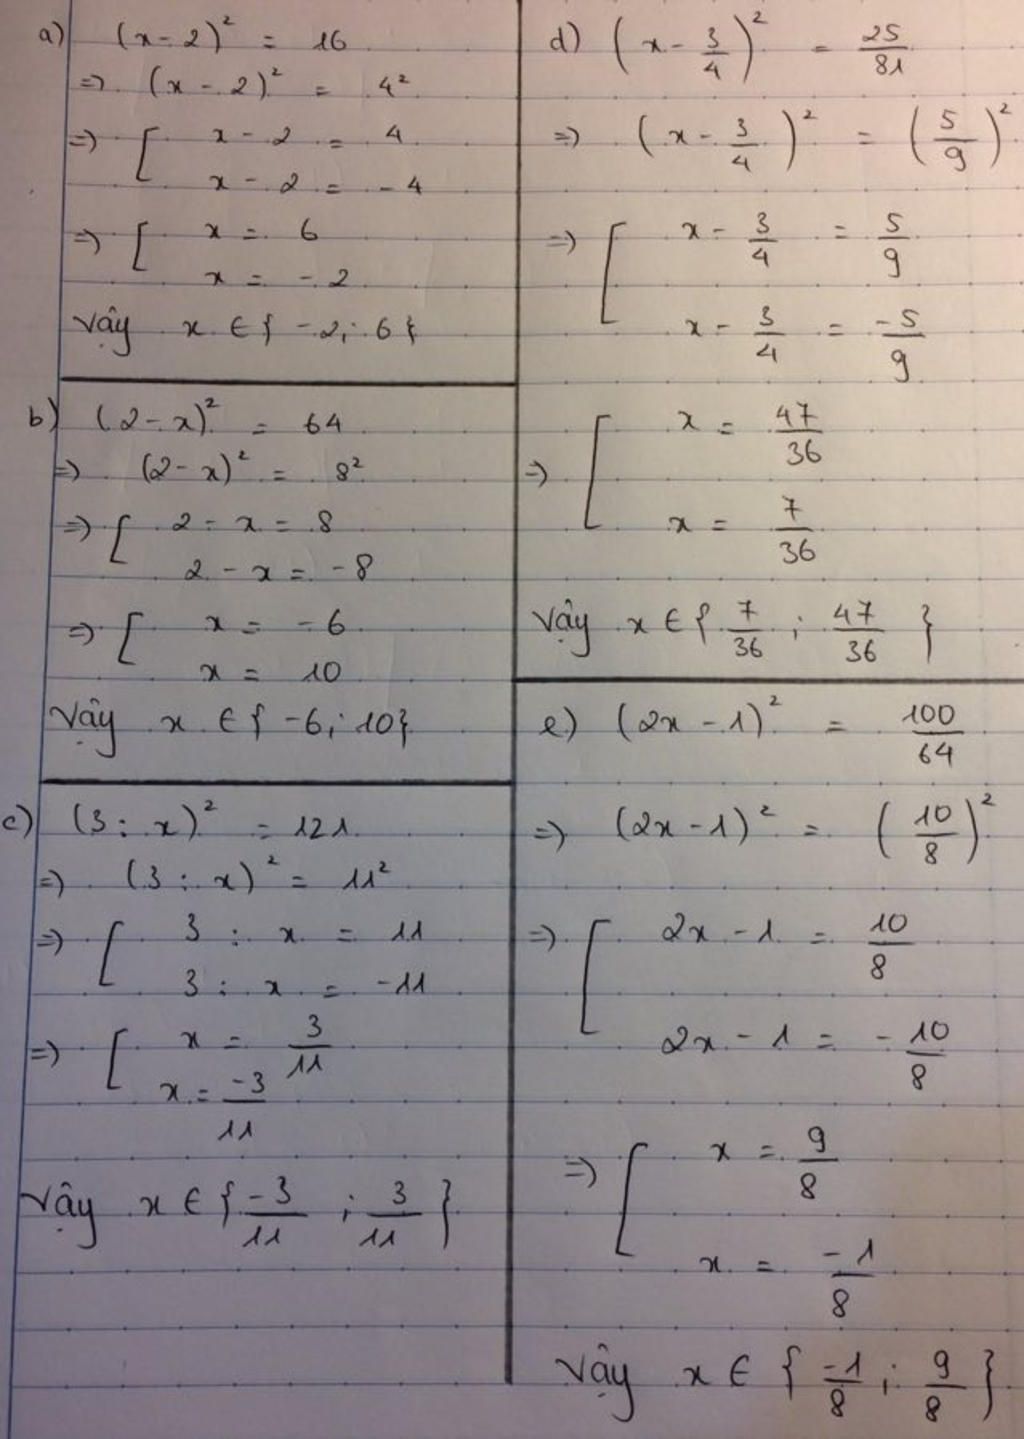 a) (x - 2)² = 16
=> (x - 2)² = 4²
=> [ x - 2 = 4
x - 2 = -4
=> [ x = 6
x = -2
Vậy x ∈ { -2; 6 }
b) (2 - x)² = 64
=> (2 - x)² = 8²
=> [ 2 - x = 8
2 - x = -8
=> [ x = -6
x = 10
Vậy x ∈ { -6; 10 }
c) (3 : x)² = 121
=> (3 : x)² = 11²
=> [ 3 : x = 11
3 : x = -11
=> [ x = 3/11
x = -3/11
Vậy x ∈ { -3/11 ; 3/11 }
d) (x - 3/4)² = 25/81
=> (x - 3/4)² = (5/9)²
=> [ x - 3/4 = 5/9
x - 3/4 = -5/9
=> [ x = 47/36
x = 7/36
Vậy x ∈ { 7/36 ; 47/36 }
e) (2x - 1)² = 100/64
=> (2x - 1)² = (10/8)²
=> [ 2x - 1 = 10/8
2x - 1 = -10/8
=> [ x = 9/8
x = -1/8
Vậy x ∈ { -1/8 ; 9/8 }